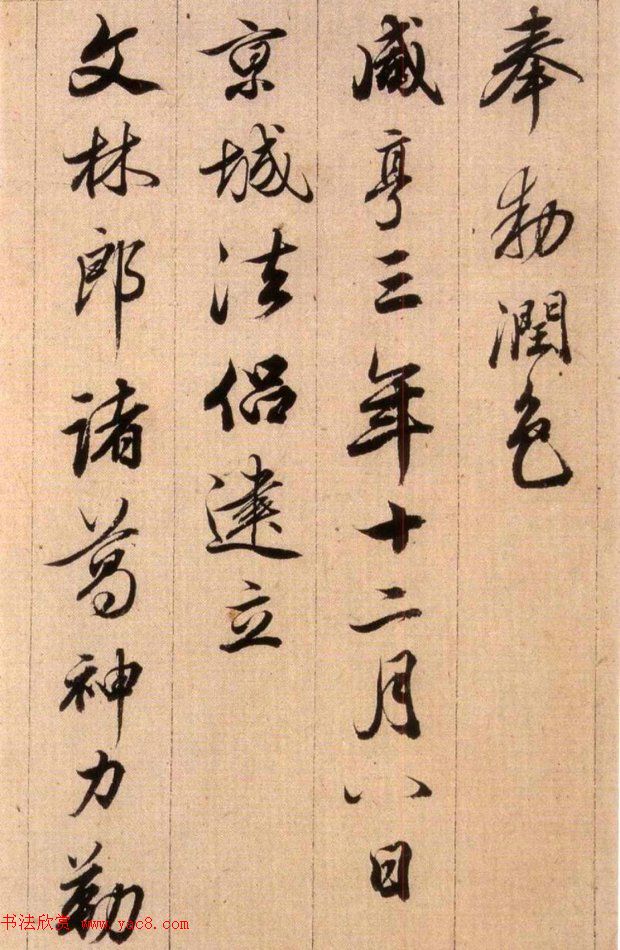 奉勅潤色
咸亨三年十二月八日
京城法侶建立
文林郎諸葛神力勒
书法欣赏 www.yac8.com